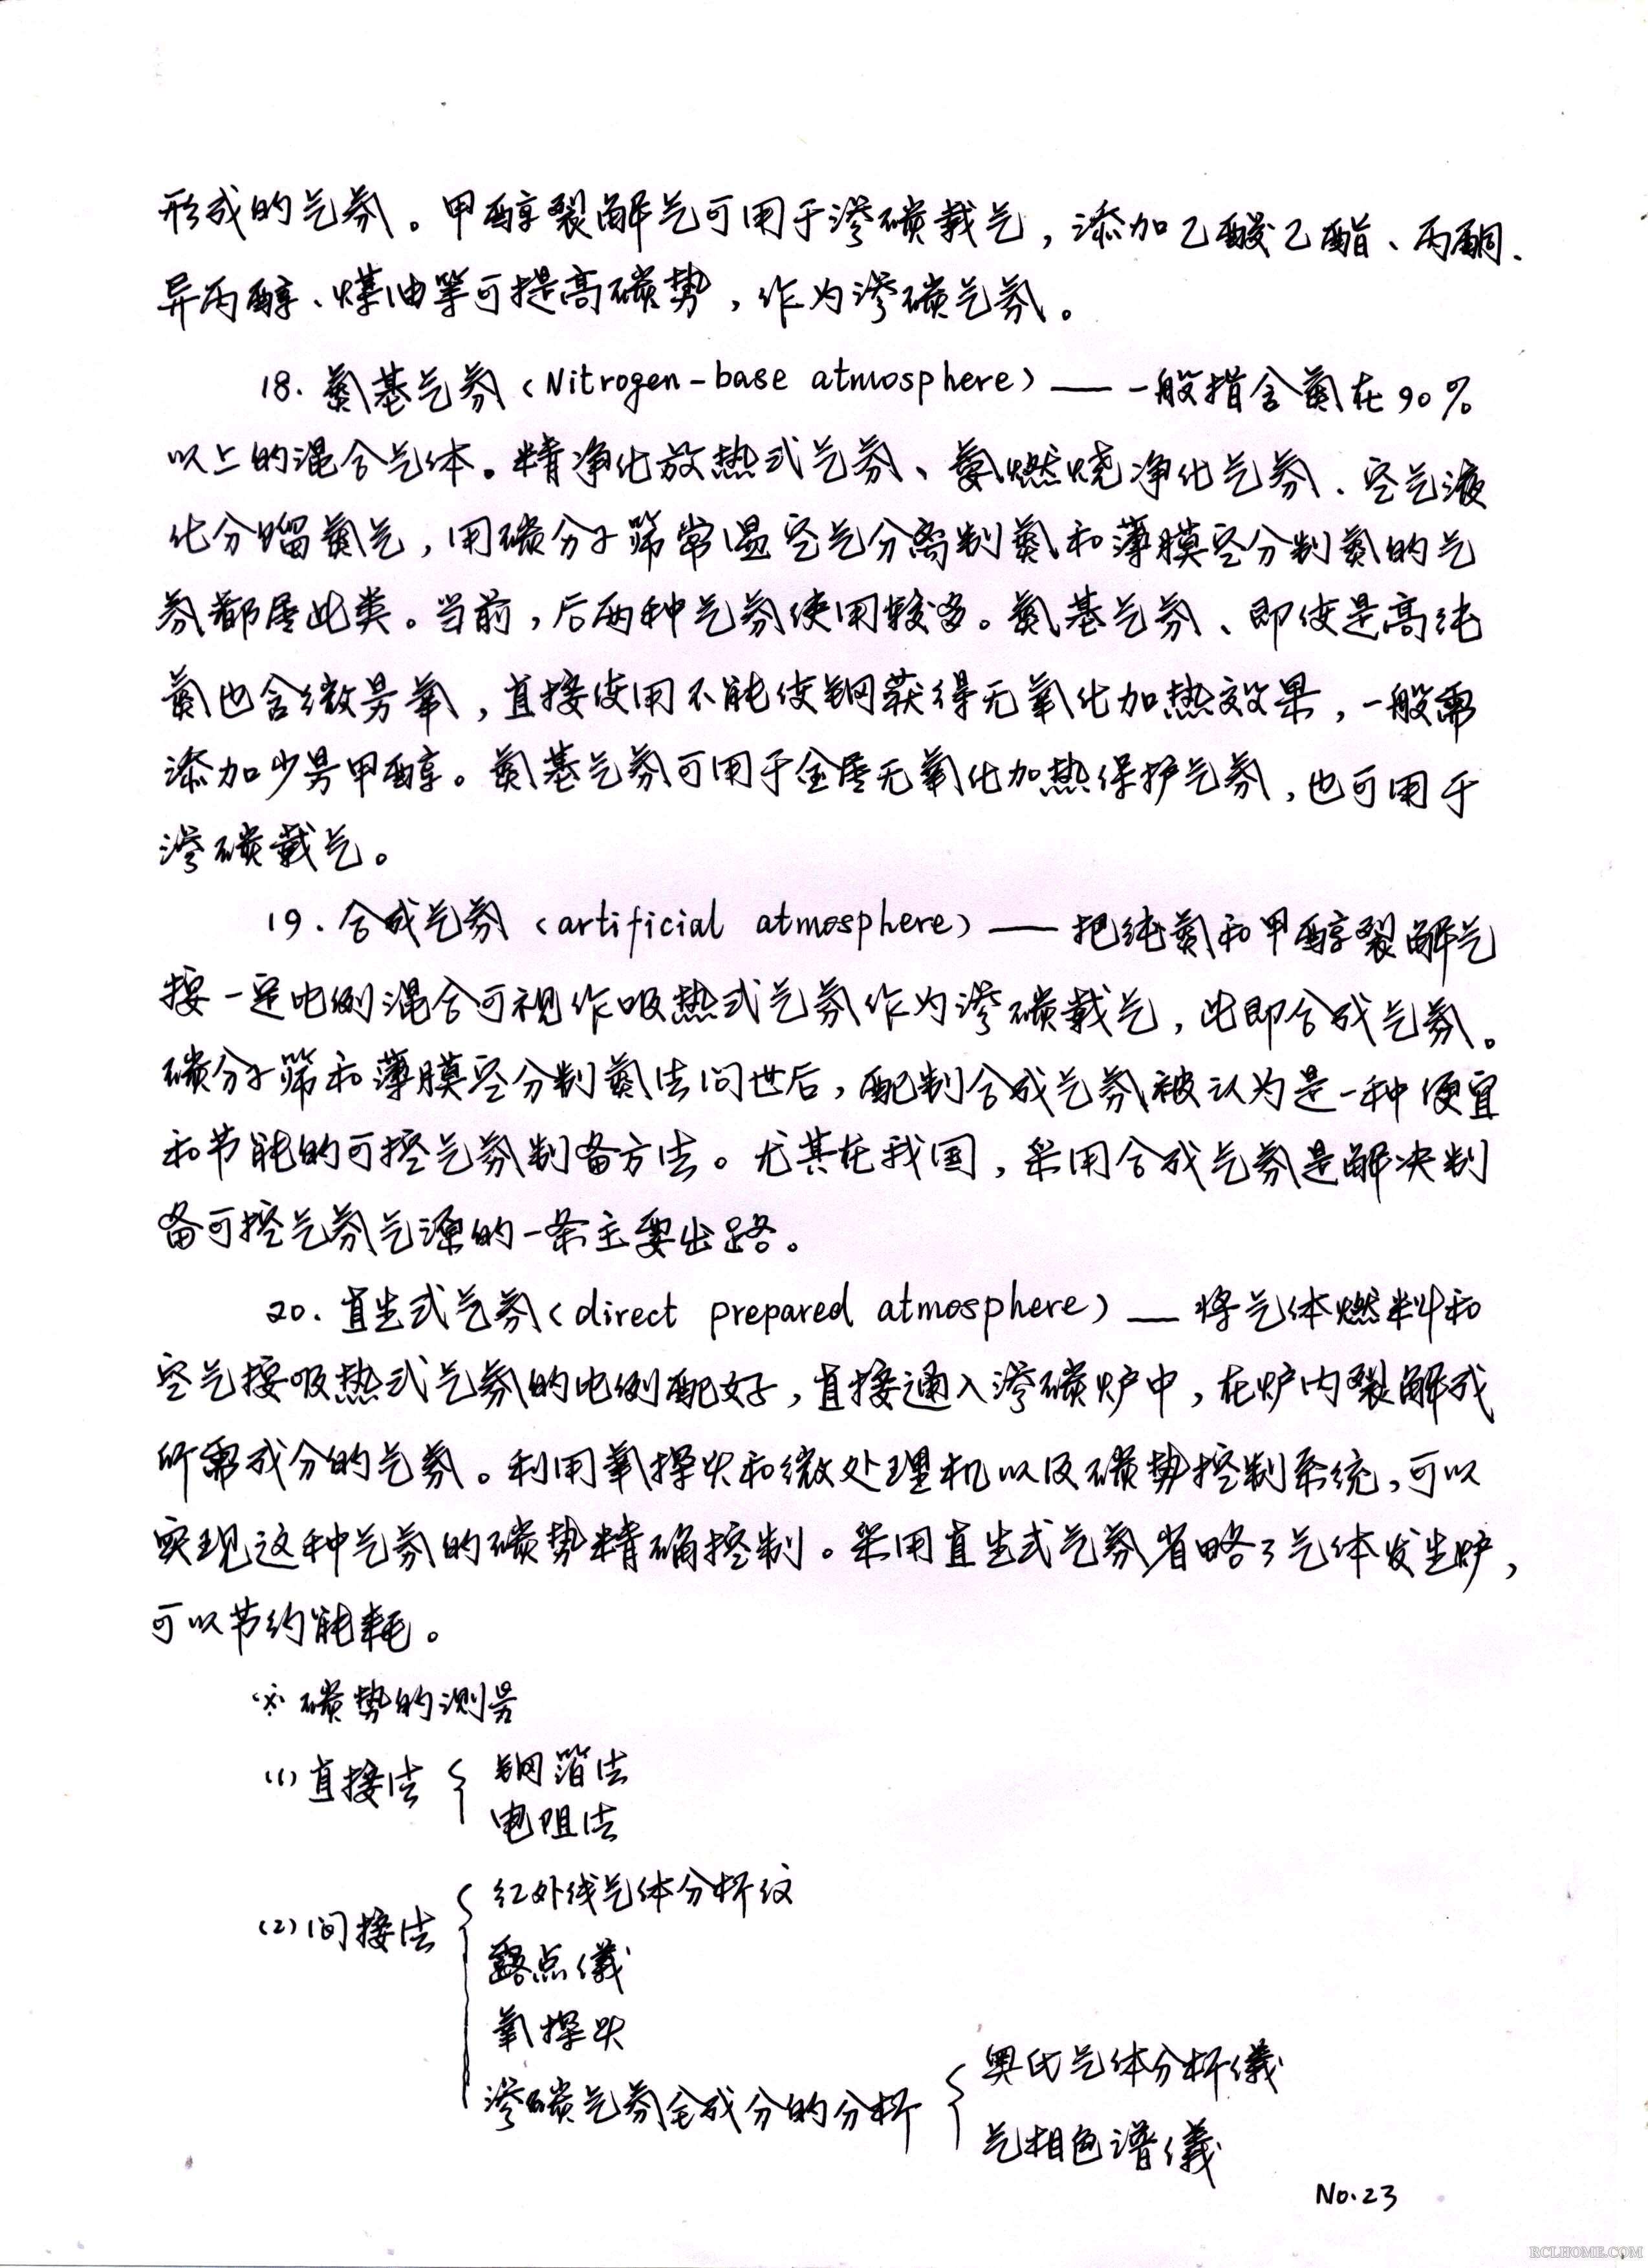 形成的气氛。甲醇裂解气可用于渗碳载气，添加乙酸乙酯、丙酮、
异丙醇、煤油等可提高碳势，作为渗碳气氛。
18. 氮基气氛（Nitrogen-base atmosphere）—— 一般指含氮在90%
以上的混合气体。精净化放热式气氛、氨燃烧净化气氛、空气液
化分馏氮气，用碳分子筛常温空气分离制氮和薄膜空分制氮的气
氛都属此类。当前，后两种气氛使用较多。氮基气氛、即使是高纯
氮也含微量氧，直接使用不能使钢获得无氧化加热效果，一般需
添加少量甲醇。氮基气氛可用于金属无氧化加热保护气氛，也可用于
渗碳载气。
19. 合成气氛（artificial atmosphere）—— 把纯氮和甲醇裂解气
按一定比例混合可视作吸热式气氛作为渗碳载气，此即合成气氛。
碳分子筛和薄膜空分制氮法问世后，配制合成气氛被认为是一种便宜
和节能的可控气氛制备方法。尤其在我国，采用合成气氛是解决制
备可控气氛气源的一条主要出路。
20. 直生式气氛（direct prepared atmosphere）—— 将气体燃料和
空气按吸热式气氛的比例配好，直接通入渗碳炉中，在炉内裂解成
所需成分的气氛。利用氧探头和微处理机以及碳势控制系统，可以
实现这种气氛的碳势精确控制。采用直生式气氛省略了气体发生炉，
可以节约能耗。
※ 碳势的测量
(1) 直接法 { 钢箔法
电阻法
(2) 间接法 { 红外线气体分析仪
露点儀
氧探头
渗碳气氛全成分的分析 { 奥氏气体分析儀
气相色谱儀
No.23
RCLHOME.COM